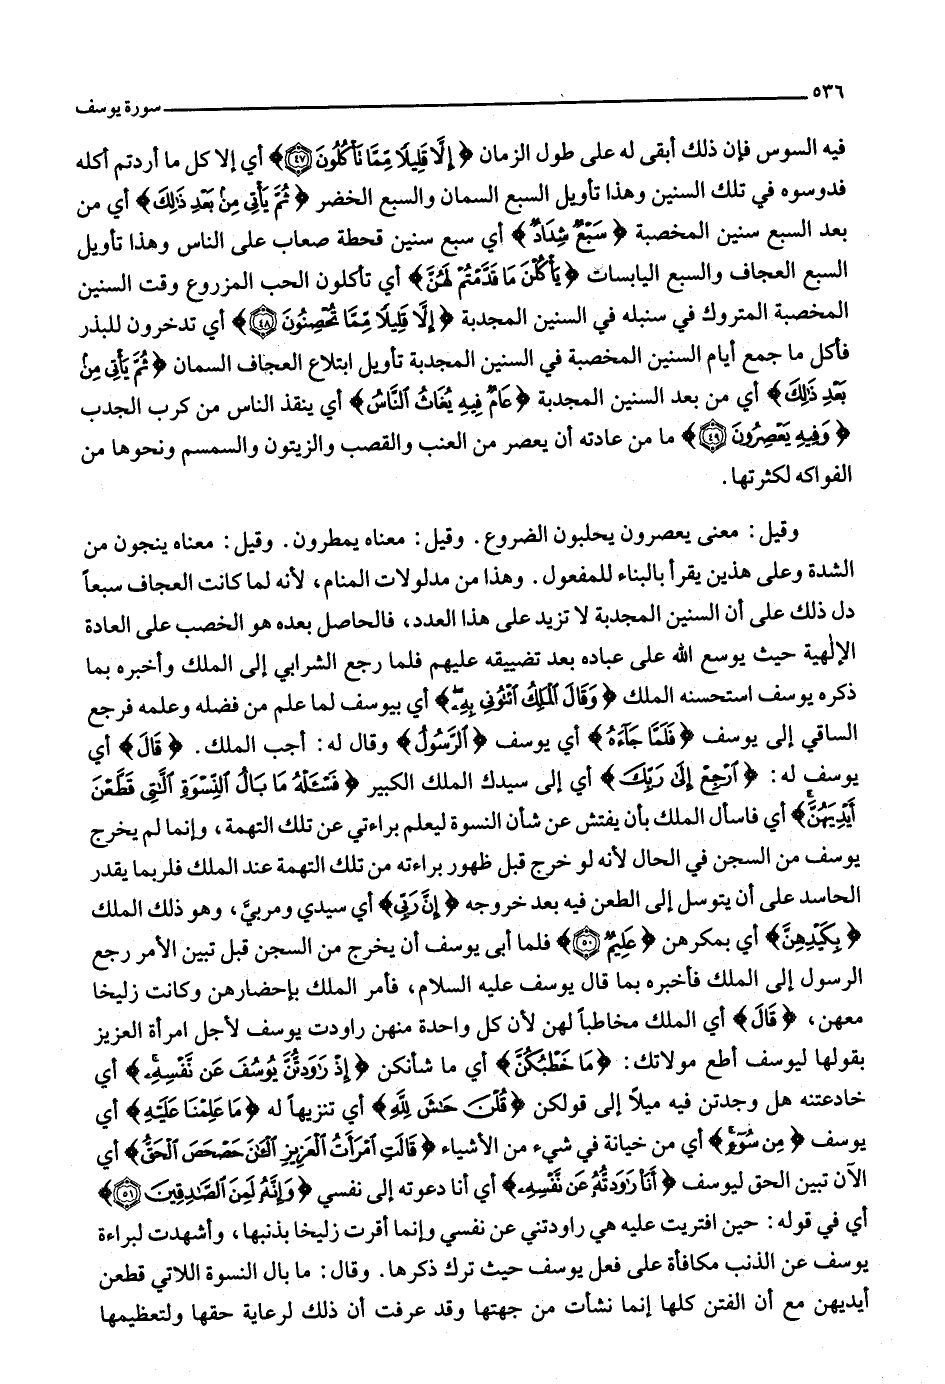 ٥٣٦ سورة يوسف
فيه السوس فإن ذلك أبقى له على طول الزمان ﴿ إِلَّا قَلِيلًا مِّمَّا تَأْكُلُونَ ٤٧﴾ أي إلا كل ما أردتم أكله
فدوسوه في تلك السنين وهذا تأويل السبع السمان والسبع الخضر ﴿ ثُمَّ يَأْتِي مِنْ بَعْدِ ذَٰلِكَ﴾ أي من
بعد السبع سنين المخصبة ﴿ سَبْعٌ شِدَادٌ ﴾ أي سبع سنين قحطة صعاب على الناس وهذا تأويل
السبع العجاف والسبع اليابسات ﴿ يَأْكُلْنَ مَا قَدَّمْتُمْ لَهُنَّ﴾ أي تأكلون الحب المزروع وقت السنين
المخصبة المتروك في سنبله في السنين المجدبة ﴿ إِلَّا قَلِيلًا مِّمَّا تُحْصِنُونَ ٤٨﴾ أي تدخرون للبذر
فأكل ما جمع أيام السنين المخصبة في السنين المجدبة تأويل ابتلاع العجاف السمان ﴿ ثُمَّ يَأْتِي مِنْ
بَعْدِ ذَٰلِكَ﴾ أي من بعد السنين المجدبة ﴿ عَامٌ فِيهِ يُغَاثُ ٱلنَّاسُ﴾ أي ينقذ الناس من كرب الجدب
﴿ وَفِيهِ يَعْصِرُونَ ٤٩﴾ ما من عادته أن يعصر من العنب والقصب والزيتون والسمسم ونحوها من
الفواكه لكثرتها.
وقيل: معنى يعصرون يحلبون الضروع. وقيل: معناه يمطرون. وقيل: معناه ينجون من
الشدة وعلى هذين يقرأ بالبناء للمفعول. وهذا من مدلولات المنام، لأنه لما كانت العجاف سبعاً
دل ذلك على أن السنين المجدبة لا تزيد على هذا العدد، فالحاصل بعده هو الخصب على العادة
الإلٰهية حيث يوسع الله على عباده بعد تضييقه عليهم فلما رجع الشرابي إلى الملك وأخبره بما
ذكره يوسف استحسنه الملك ﴿ وَقَالَ ٱلْمَلِكُ ٱئْتُونِي بِهِۦ ۖ﴾ أي بيوسف لما علم من فضله وعلمه فرجع
الساقي إلى يوسف ﴿ فَلَمَّا جَآءَهُ﴾ أي يوسف ﴿ ٱلرَّسُولُ﴾ وقال له: أجب الملك. ﴿ قَالَ﴾ أي
يوسف له: ﴿ ٱرْجِعْ إِلَىٰ رَبِّكَ﴾ أي إلى سيدك الملك الكبير ﴿ فَسْـَٔلْهُ مَا بَالُ ٱلنِّسْوَةِ ٱلَّٰتِي قَطَّعْنَ
أَيْدِيَهُنَّ ۚ﴾ أي فاسأل الملك بأن يفتش عن شأن النسوة ليعلم براءتي عن تلك التهمة، وإنما لم يخرج
يوسف من السجن في الحال لأنه لو خرج قبل ظهور براءته من تلك التهمة عند الملك فلربما يقدر
الحاسد على أن يتوسل إلى الطعن فيه بعد خروجه ﴿ إِنَّ رَبِّي﴾ أي سيدي ومربيَّ، وهو ذلك الملك
﴿ بِكَيْدِهِنَّ﴾ أي بمكرهن ﴿ عَلِيمٌ ٥٠﴾ فلما أبى يوسف أن يخرج من السجن قبل تبين الأمر رجع
الرسول إلى الملك فأخبره بما قال يوسف عليه السلام، فأمر الملك بإحضارهن وكانت زليخا
معهن، ﴿ قَالَ﴾ أي الملك مخاطباً لهن لأن كل واحدة منهن راودت يوسف لأجل امرأة العزيز
بقولها ليوسف أطع مولاتك: ﴿ مَا خَطْبُكُنَّ﴾ أي ما شأنكن ﴿ إِذْ رَٰوَدتُّنَّ يُوسُفَ عَن نَّفْسِهِۦ ۚ﴾ أي
خادعتنه هل وجدتن فيه ميلاً إلى قولكن ﴿ قُلْنَ حَٰشَ لِلَّهِ﴾ أي تنزيهاً له ﴿ مَا عَلِمْنَا عَلَيْهِ﴾ أي
يوسف ﴿ مِن سُوٓءٍ ۚ﴾ أي من خيانة في شيء من الأشياء ﴿ قَالَتِ ٱمْرَأَتُ ٱلْعَزِيزِ ٱلْـَٰٔنَ حَصْحَصَ ٱلْحَقُّ﴾ أي
الآن تبين الحق ليوسف ﴿ أَنَا۠ رَٰوَدتُّهُۥ عَن نَّفْسِهِۦ﴾ أي أنا دعوته إلى نفسي ﴿ وَإِنَّهُۥ لَمِنَ ٱلصَّٰدِقِينَ ٥١﴾
أي في قوله: حين افتريت عليه هي راودتني عن نفسي وإنما أقرت زليخا بذنبها، وأشهدت لبراءة
يوسف عن الذنب مكافأة على فعل يوسف حيث ترك ذكرها. وقال: ما بال النسوة اللاتي قطعن
أيديهن مع أن الفتن كلها إنما نشأت من جهتها وقد عرفت أن ذلك لرعاية حقها ولتعظيمها